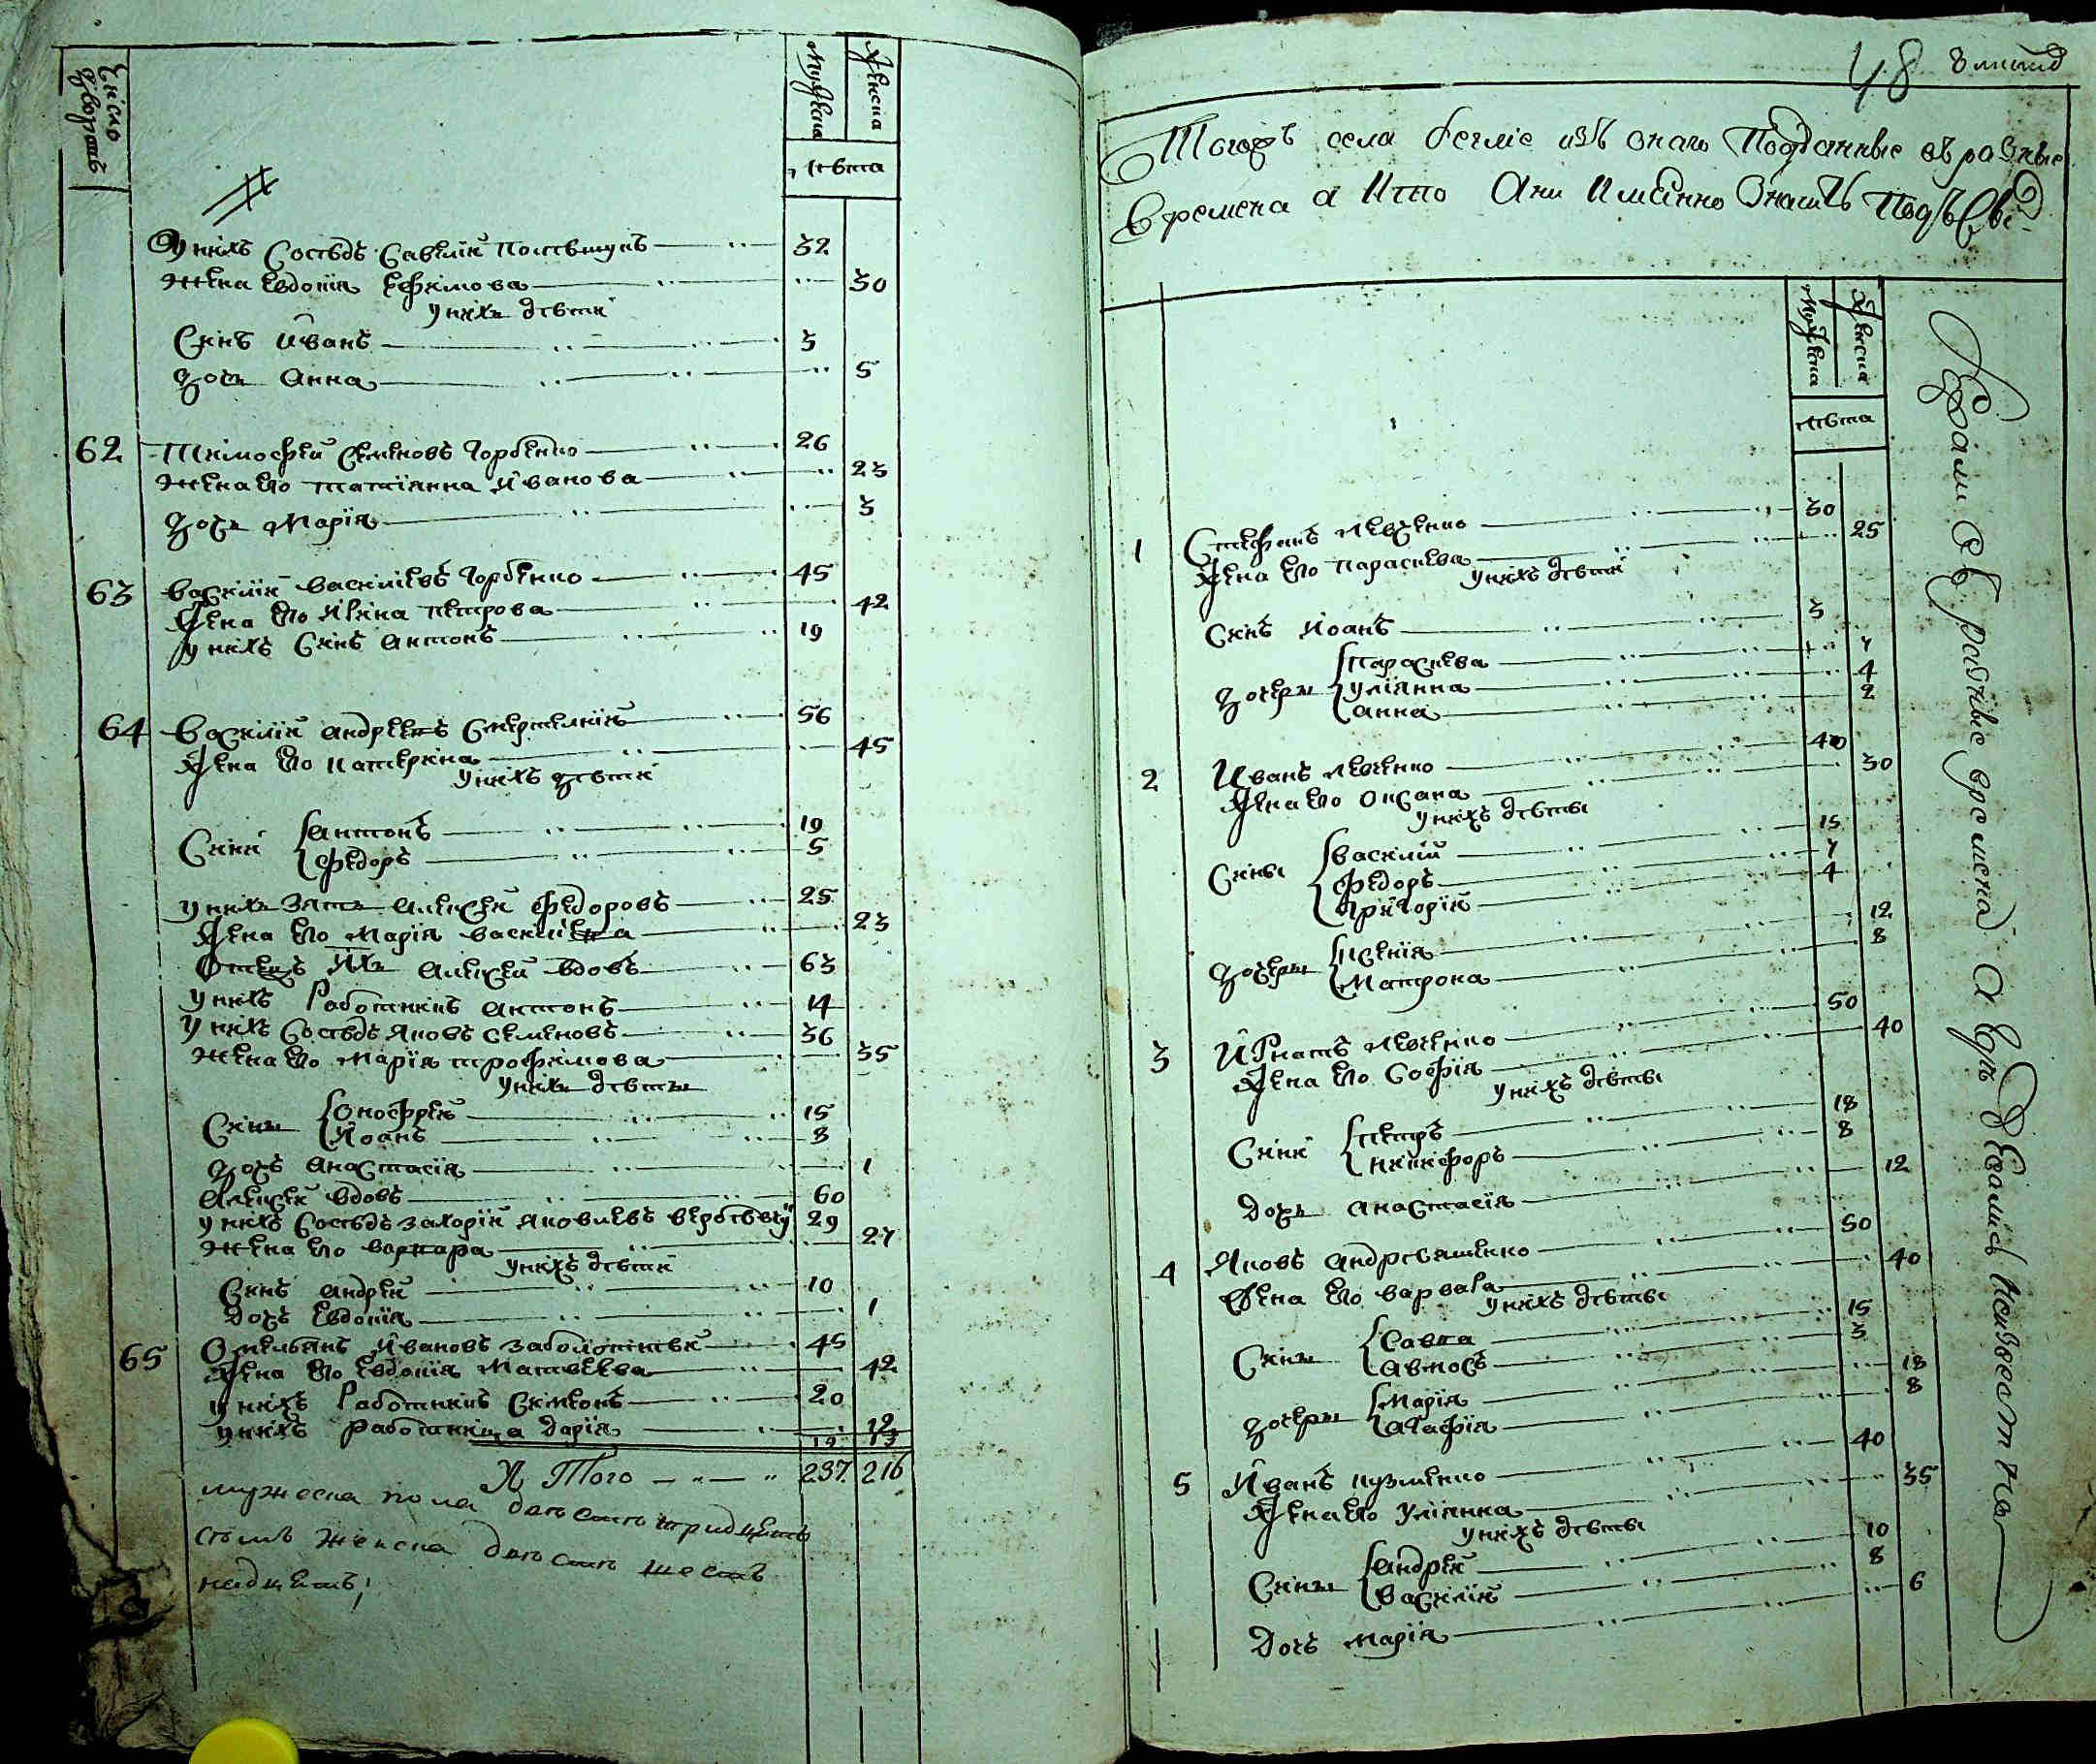 Число дворовъ
Мужеска
Женска
лѣта
У нихъ Сосѣдъ Савелій 32
Жена Евдокія Ефимова 30
у нихъ дѣти
Синъ Иванъ 3
Дочь Анна 5
62 Тимофей Семеновъ Горбенко 26
Жена его Татіанна Иванова 23
Дочь Марія 3
63 Василій Василіевъ Горбенко 45
Жена его Ирина Петрова 42
У нихъ Синъ Антонъ 19
64 Василій Андреевъ 56
Жена его Катерина 45
у нихъ дѣти
Сини Антонъ 19
Федоръ 5
У нихъ зять Алексей Федоровъ 25
Жена его Марія Василіева 23
Отецъ ихъ Алексей вдовъ 63
У нихъ Работникъ Антонъ 14
У нихъ Сосѣдъ Яковъ Семеновъ 36
Жена его Марія Трофимова 35
у нихъ дѣти
Сины Онофрей 15
Иоанъ 8
Дочь Анастасія 1
Алексей вдовъ 60
У нихъ Сосѣдъ Захарій Яковлевъ 29
Жена его Варвара 27
у нихъ дѣти
Синъ Андрей 10
Дочъ Евдокія 1
65 Омельянъ Ивановъ 45
Жена его Евдокія Матвеева 42
У нихъ Работникъ Симеонъ 20
У нихъ Работница Дарія 12
И Того 237 216
мужеска пола двѣсти тридцять
сѣмъ женска двѣсти шесть
надцеть
48
Тогожъ села беглые изъ оного Подданные въ разные
времена а кто они имѣнно значитъ подъ симъ
Мужеска
Женска
лѣта
1 Стефанъ Левченко 30
Жена его Параскева 25
у нихъ дѣти
Синъ Иоанъ 3
Дочеры Параскева 7
Улианна 4
Анна 2
2 Иванъ Левченко 40
Жена его Оксана 30
у нихъ дѣты
Сины Василий 15
Федоръ 7
Григорій 4
Дочеры Ксенія 12
Матрона 8
3 Игнатъ Левченко 50
Жена его Софія 40
у нихъ дѣты
Сини Петръ 18
Никифоръ 8
Дочь Анастасія 12
4 Яковъ Андрѣяшенко 50
Жена его Варвара 40
у нихъ дѣты
Сины Савка 15
Амносъ 3
Дочеры Марія 18
Агафія 8
5 Иванъ Кузменко 40
Жена его Улянна 35
у нихъ дѣты
Сины Андрей 10
Василій 8
Дочъ Марія 6
Бѣжали въ разные времена а где делись неизвестно